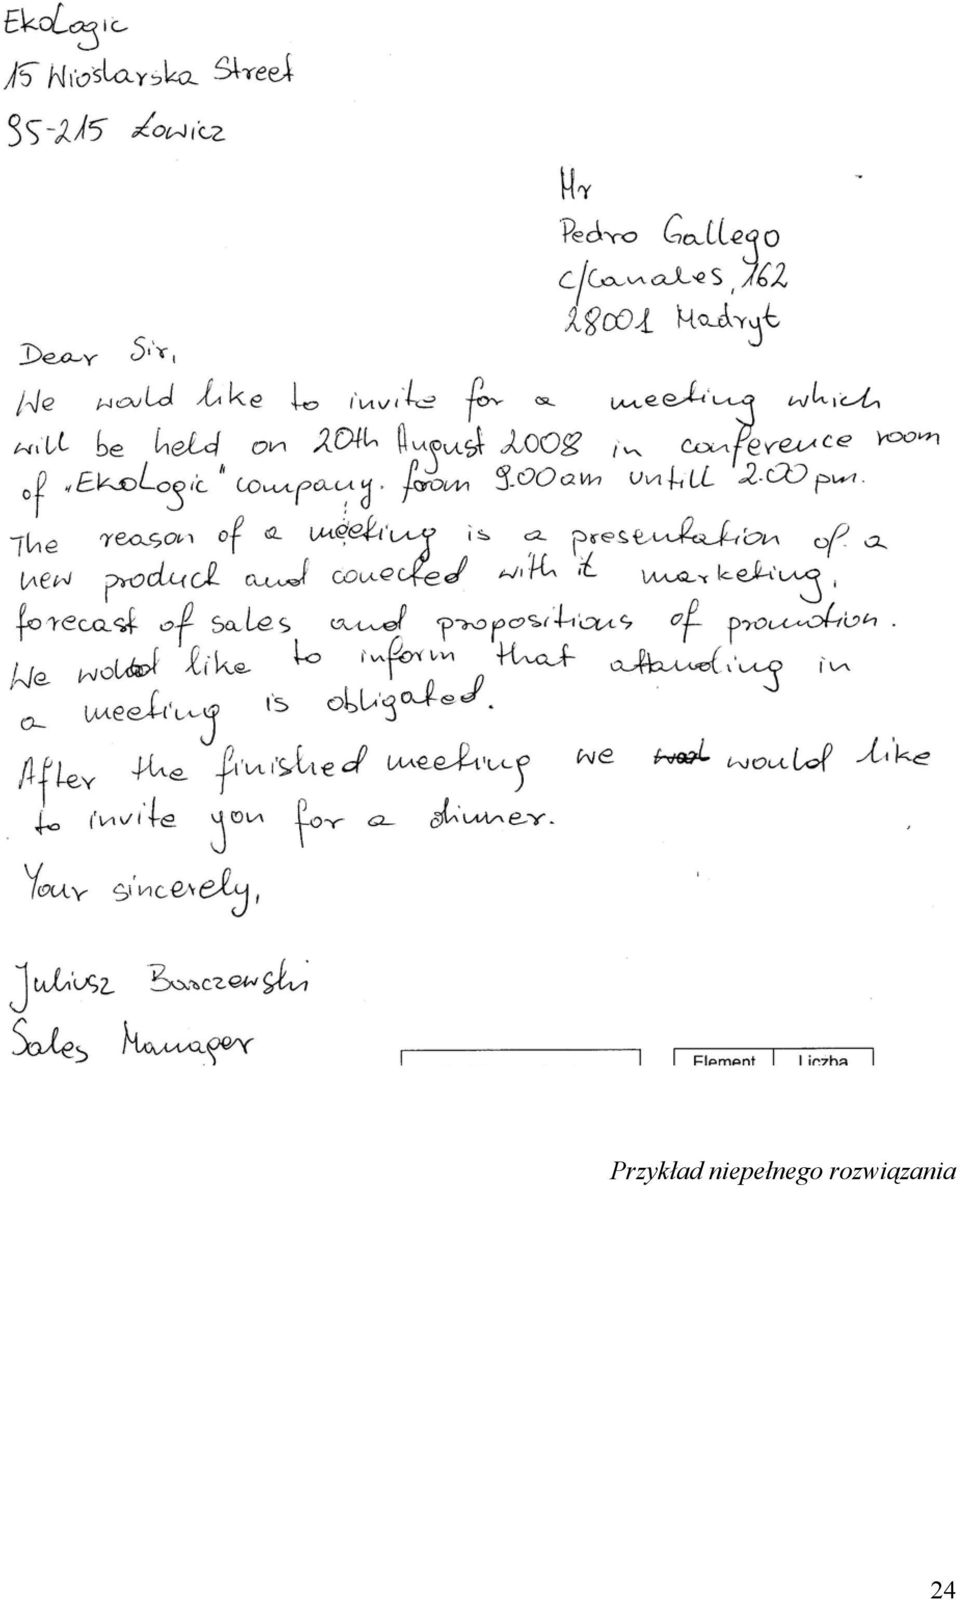 EkoLogic
15 Wioślarska Street
95-215 Łowicz
Mr
Pedro Gallego
c/Canales, 162
28001 Madryt
Dear Sir,
We would like to invite for a meeting which
will be held on 20th August 2008 in conference room
of „EkoLogic" company. from 9.00 am untill 2.00 pm.
The reason of a meeting is a presentation of a
new product and conected with it marketing,
forecast of sales and propositions of promotion.
We would like to inform that attanding in
a meeting is obligated.
After the finished meeting we would like
to invite you for a dinner.
Your sincerely,
Juliusz Barczewski
Sales Manager
Element Liczba
Przykład niepełnego rozwiązania
24